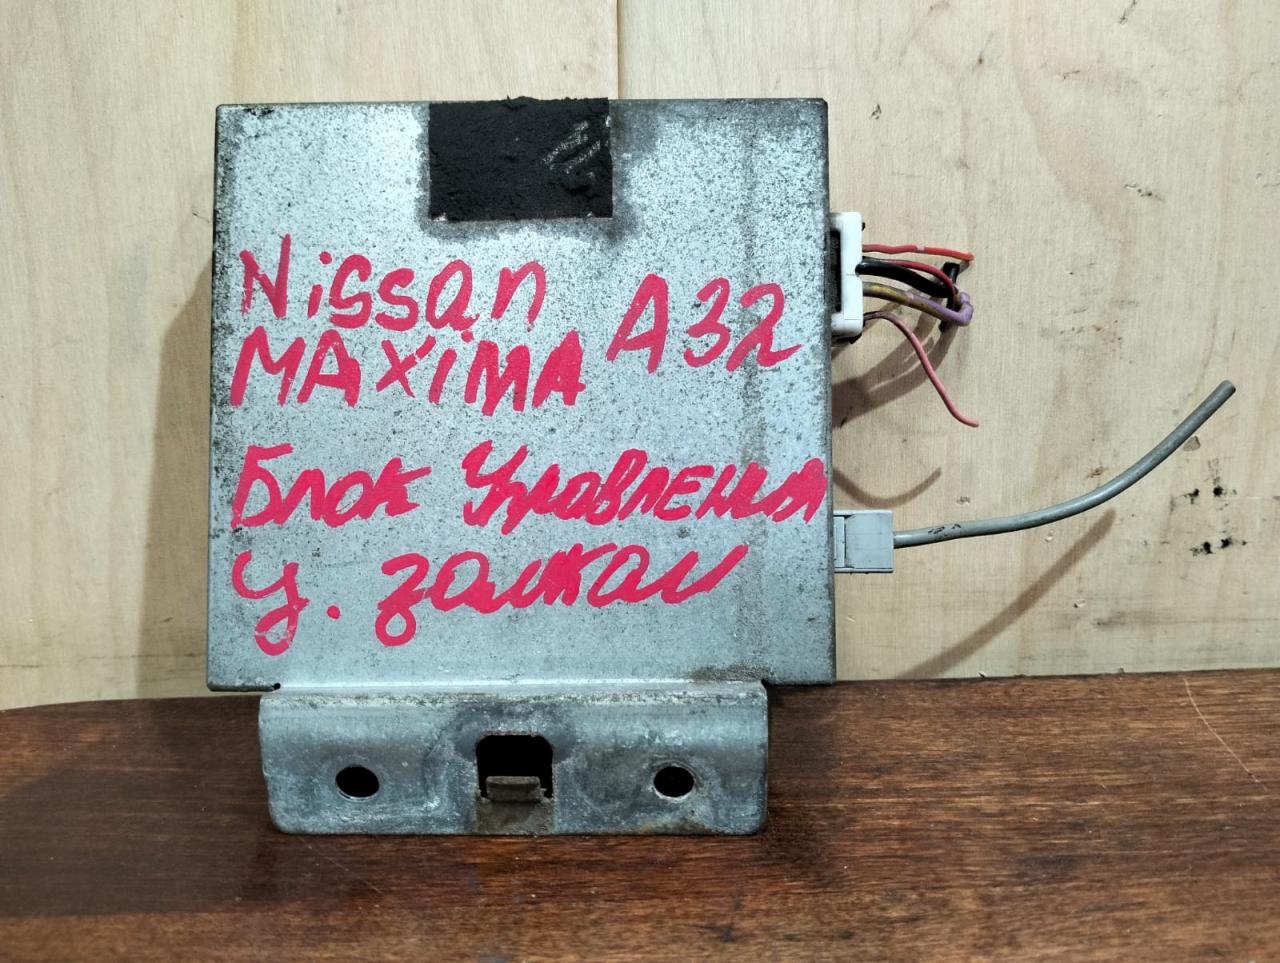 Nissan
MAXIMA A32
Блок Управления
ц. замкам